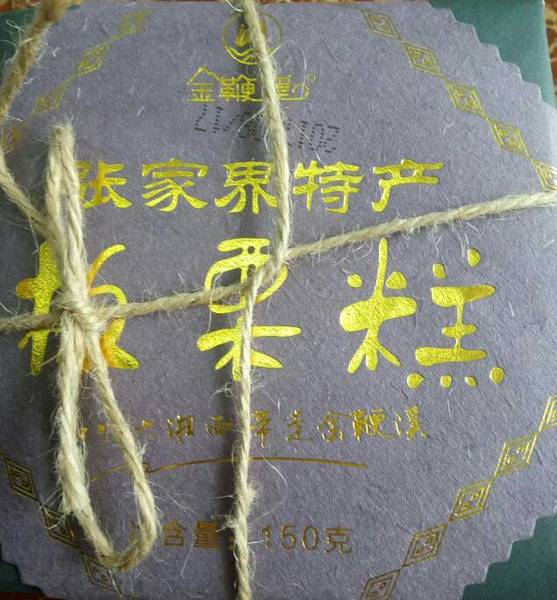 金鞭溪
张家界特产
板栗糕
湘西 金鞭溪
净含量：150克